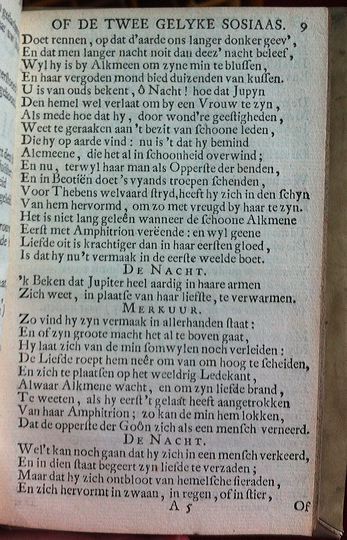 OF DE TWEE GELYKE SOSIAAS. 9
Doet rennen, op dat d'aarde ons langer donker geev',
En dat men langer nacht noit dan deez' nacht beleef,
Wyl hy is by Alkmeen om zyne min te blussen,
En haar vergoden mond bied duizenden van kussen.
U is van ouds bekent, ô Nacht! hoe dat Jupyn
Den hemel wel verlaat om by een Vrouw te zyn,
Als mede hoe dat hy, door wond're geestigheden,
Weet te geraaken aan 't bezit van schoone leden,
Die hy op aarde vind: nu is 't dat hy bemind
Alcmeene, die het al in schoonheid overwind;
En nu, terwyl haar man als Opperste der benden,
En in Beotiën doet's vyands troepen schenden,
Voor Thebens welvaard stryd, heeft hy zich in den schyn
Van hem hervormd, om zo met vreugd by haar te zyn.
Het is niet lang geleên wanneer de schoone Alkmene
Eerst met Amphitrion verëende: en wyl geene
Liefde oit is krachtiger dan in haar eersten gloed,
Is dat hy nu 't vermaak in de eerste weelde boet.
DE NACHT.
'k Beken dat Jupiter heel aardig in haare armen
Zich weet, in plaatse van haar liefste, te verwarmen.
MERKUUR.
Zo vind hy zyn vermaak in allerhanden staat:
En of zyn groote macht het al te boven gaat,
Hy laat zich van de min somwylen noch verleiden:
De Liefde roept hem neêr om van om hoog te scheiden,
En zich te plaatsen op het weeldrig Ledekant,
Alwaar Alkmene wacht, en om zyn liefde brand,
Te weeten, als hy eerst 't gelaat heeft aangetrokken
Van haar Amphitrion; zo kan de min hem lokken,
Dat de opperste der Goôn zich als een mensch verneerd.
DE NACHT.
Wel't kan noch gaan dat hy zich in een mensch verkeerd,
En in dien staat begeert zyn liefde te verzaden;
Maar dat hy zich ontbloot van hemelsche sieraden,
En zich hervormt in zwaan, in regen, of in stier,
A 5 Of